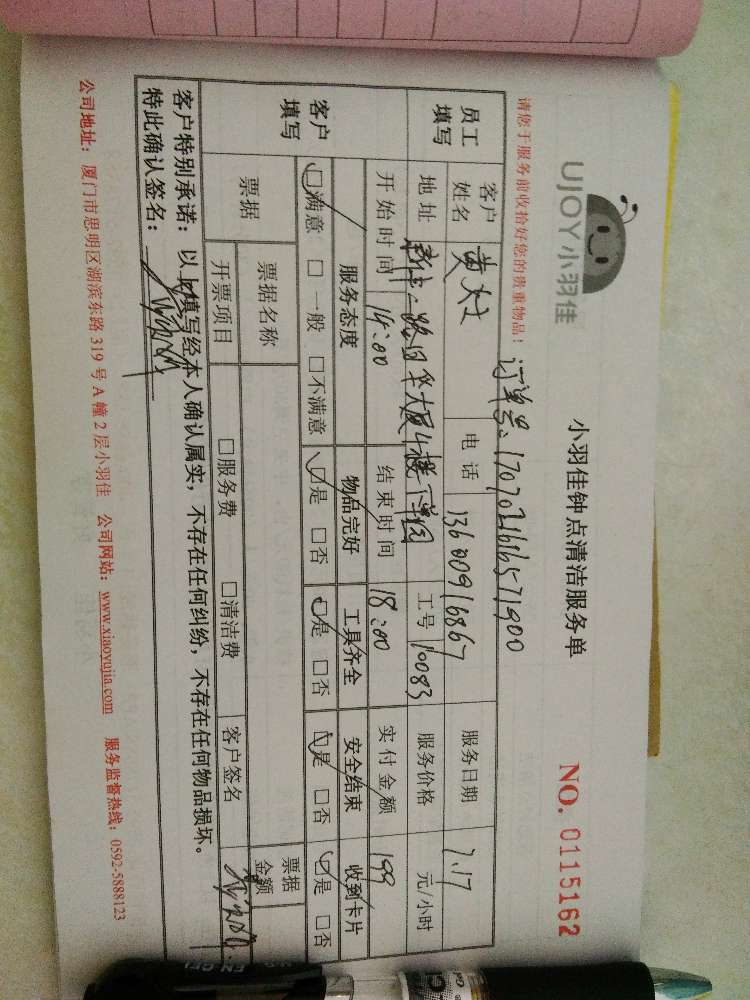 UJOY小羽佳
小羽佳钟点清洁服务单
NO. 0115162
请您于服务前收拾好您的贵重物品！
订单号：1707021616571900
员工填写
客户姓名 黄 电话 13600916867 服务日期 7.17
地址 路日华大厦4楼 工号 10083 服务价格 元/小时
开始时间 14:00 结束时间 18:00 实付金额 199
客户填写
服务态度 物品完好 工具齐全 安全结束 收到卡片
☑满意 □一般 □不满意 ☑是 □否 ☑是 □否 ☑是 □否 ☑是 □否
票据 票据名称 票据金额
开票项目 □服务费 □清洁费 客户签名
客户特别承诺：以上填写经本人确认属实，不存在任何纠纷，不存在任何物品损坏。
特此确认签名：
公司地址：厦门市思明区湖滨东路 319 号 A 幢 2 层小羽佳 公司网站：www.xiaoyujia.com 服务监督热线：0592-5888123